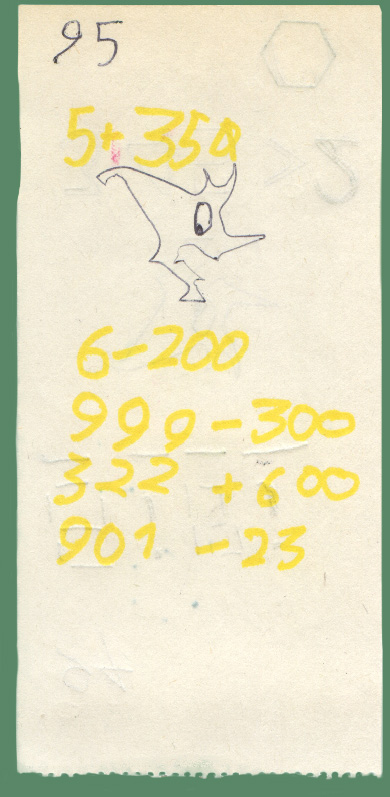 95
5+350
6-200
999-300
322 +600
901 -23